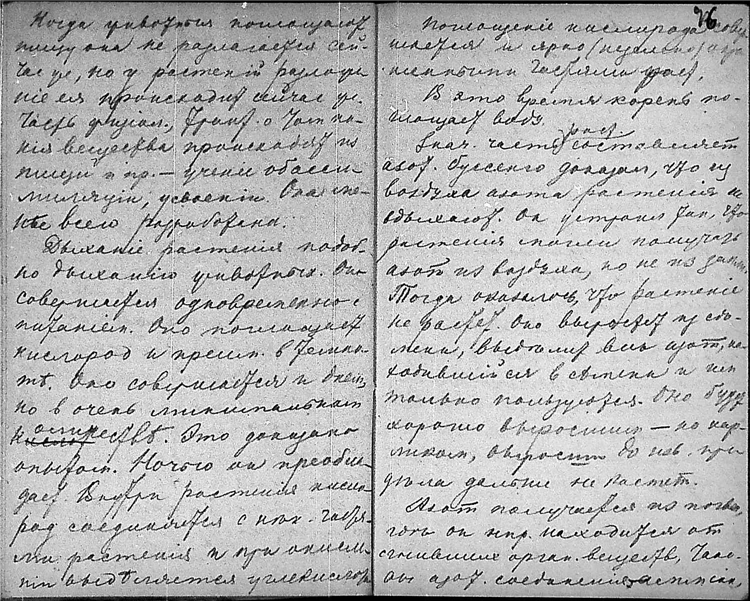 Когда животныя поглощают
пищу она не разлагается сей-
час же, но у растенiй разложе-
нiе ея происходит сейчас же.
Часть физiол., о
вещества происходит из
пищи и пр. — ученiе об асси-
миляцiи, усвоенiи. Она ме-
нѣе всего разработана.
Дыханiе растенiя подоб-
но дыханiю животных. Оно
совершается одновременно с
питанiем. Оно поглощает
кислород и преим. в темно-
тѣ. Оно совершается и днем,
но в очень минимальном
количествѣ. Это доказано
опытом. Ночью он преобла-
дает. Внутри растенiя кисло-
род соединяется с нѣк. частя-
ми растенiя и при окисле-
нiи выдѣляется углекислота
76
Поглощенiе кислорода совер-
шается и ярко
частями раст.
В это время корень по-
глощает воду.
Знач. часть раст. составляет
азот. Буссенго доказал, что из
воздуха азота растенiя не
вдыхают. Он устроил так, что
растенiя могли получать
азот из воздуха, но не из земли.
Тогда оказалось, что растенiе
не растет. Оно вырастет из сѣ-
мени, выдѣлит весь азот, на-
ходившiйся в сѣмени и им
только пользуется. Оно будет
хорошо выросшим — но кар-
ликом, вырастит до изв. пре-
дѣла дальше не растет.
Азот получается из почвы,
где он нпр. находится от
сгнивших орган. веществ, часто
азот. соединенiя,